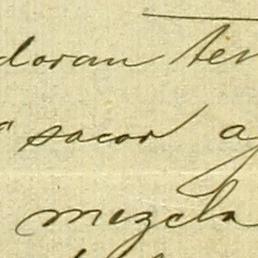 doran ten
" sacar a
mezcla